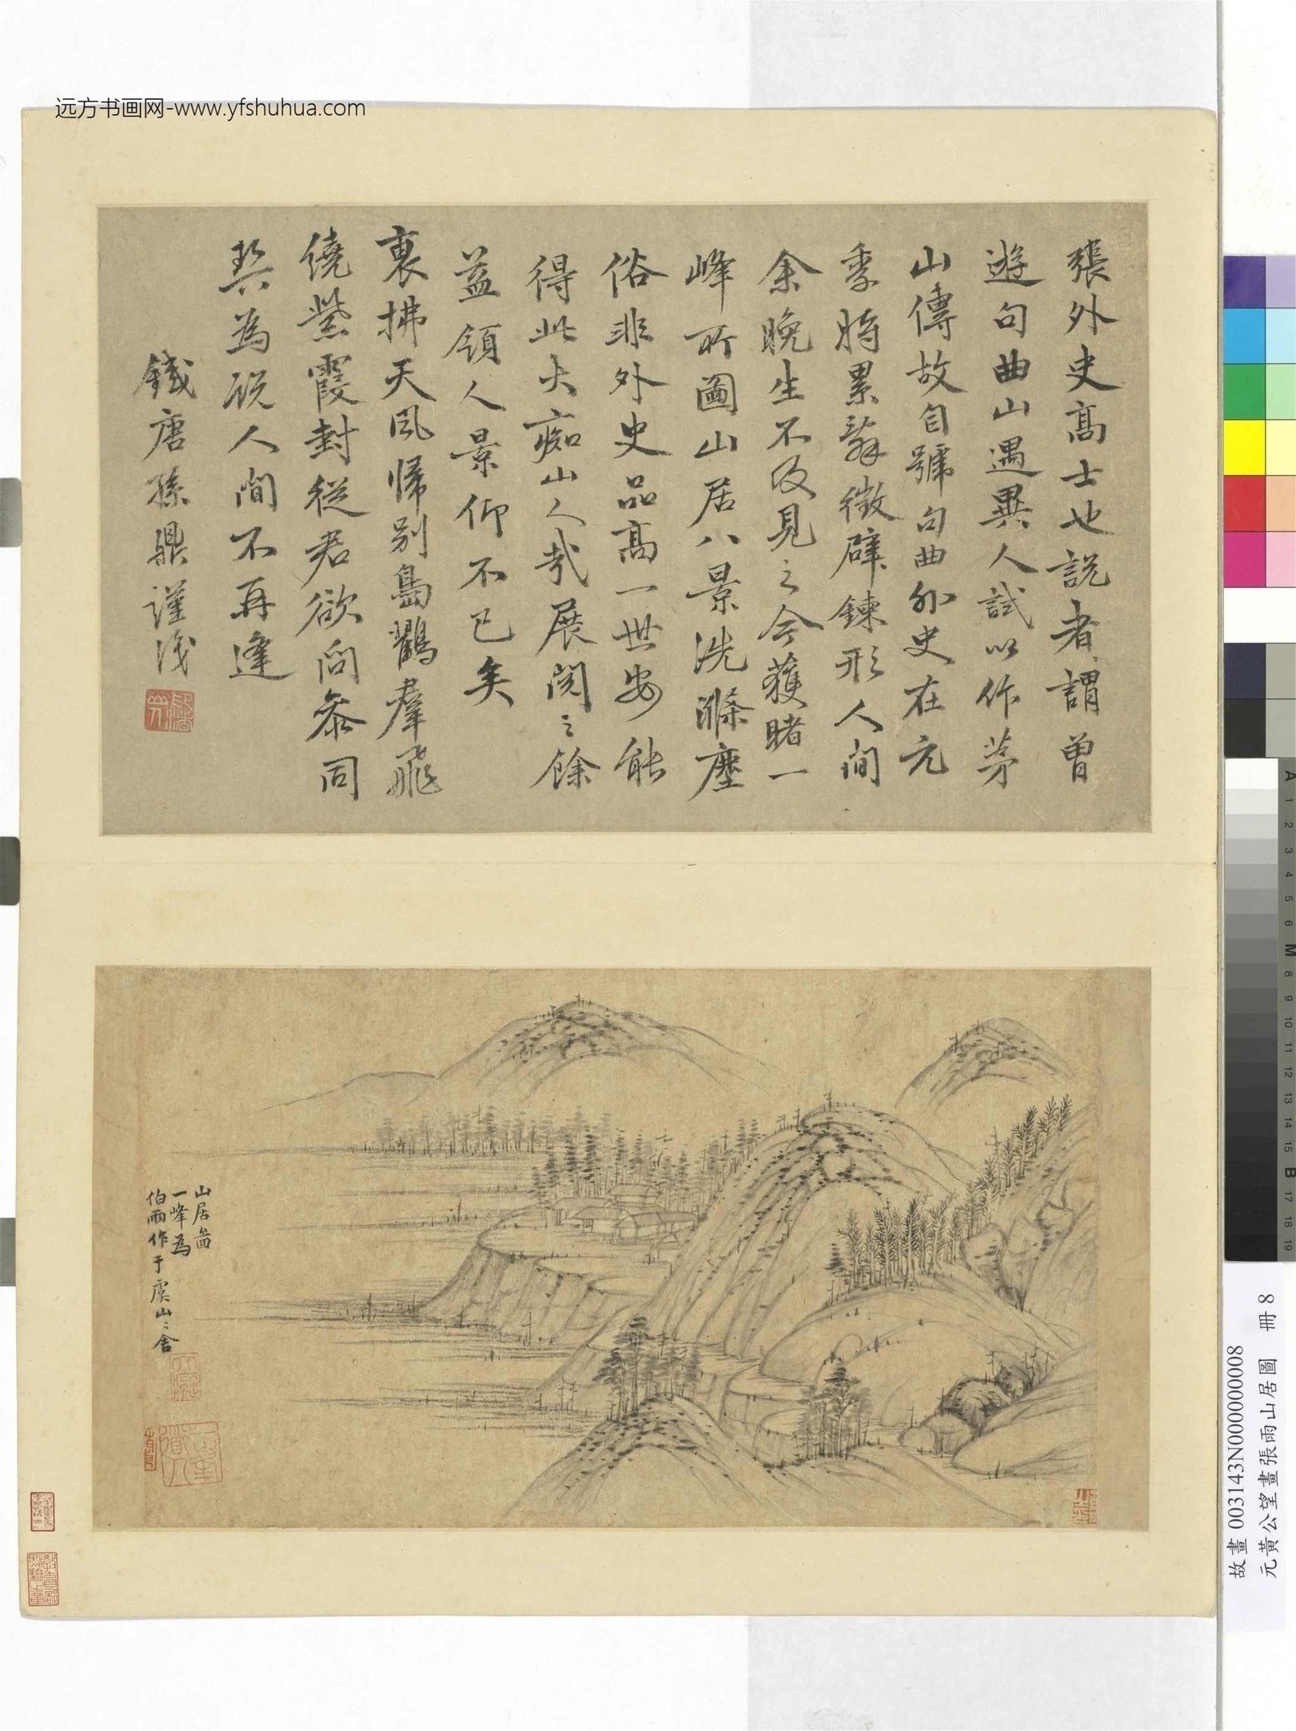 远方书画网-www.yfshuhua.com
張外史高士也說者謂曽
遊句曲山遇異人試以作茅
山傳故自號句曲外史在元
季時累辭徵辟鍊形人間
余晚生不及見之今獲睹一
峰所圖山居八景洗滌塵
俗非外史品高一世安能
得此大痴山人哉展閱之餘
益領人景仰不已矣
裏拂天風歸別島鸛羣飛
繞紫霞封從君欲問叅同
契為說人間不再逢
錢唐孫鼎謹識
山居啚
一峰為
伯雨作于虞山山舍
故畫 003143N000000008
元黃公望畫張雨山居圖 冊 8
A 1 2 3 4 5 6 M 8 9 10 11 12 13 14 15 B 17 18 19